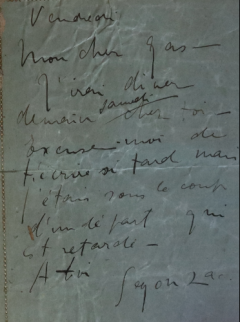 Vendredi
Mon cher gas —
J'irai diner
demain samedi chez toi —
excuse-moi de
t'écrire si tard mais
j'étais sous le coup
d'un départ qui
est retardé —
A toi
Segonzac